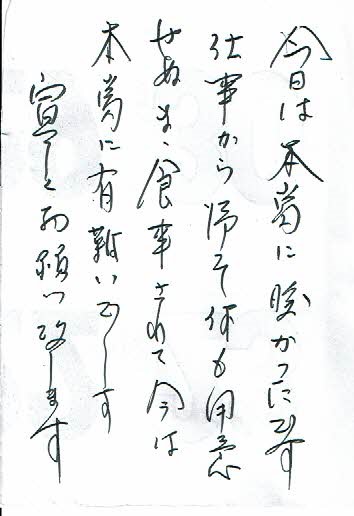 今日は本当に暖かったです
仕事から帰って何も用意
せぬまゝ食事されて今は
本当に有難いです
宜しくお願い致します